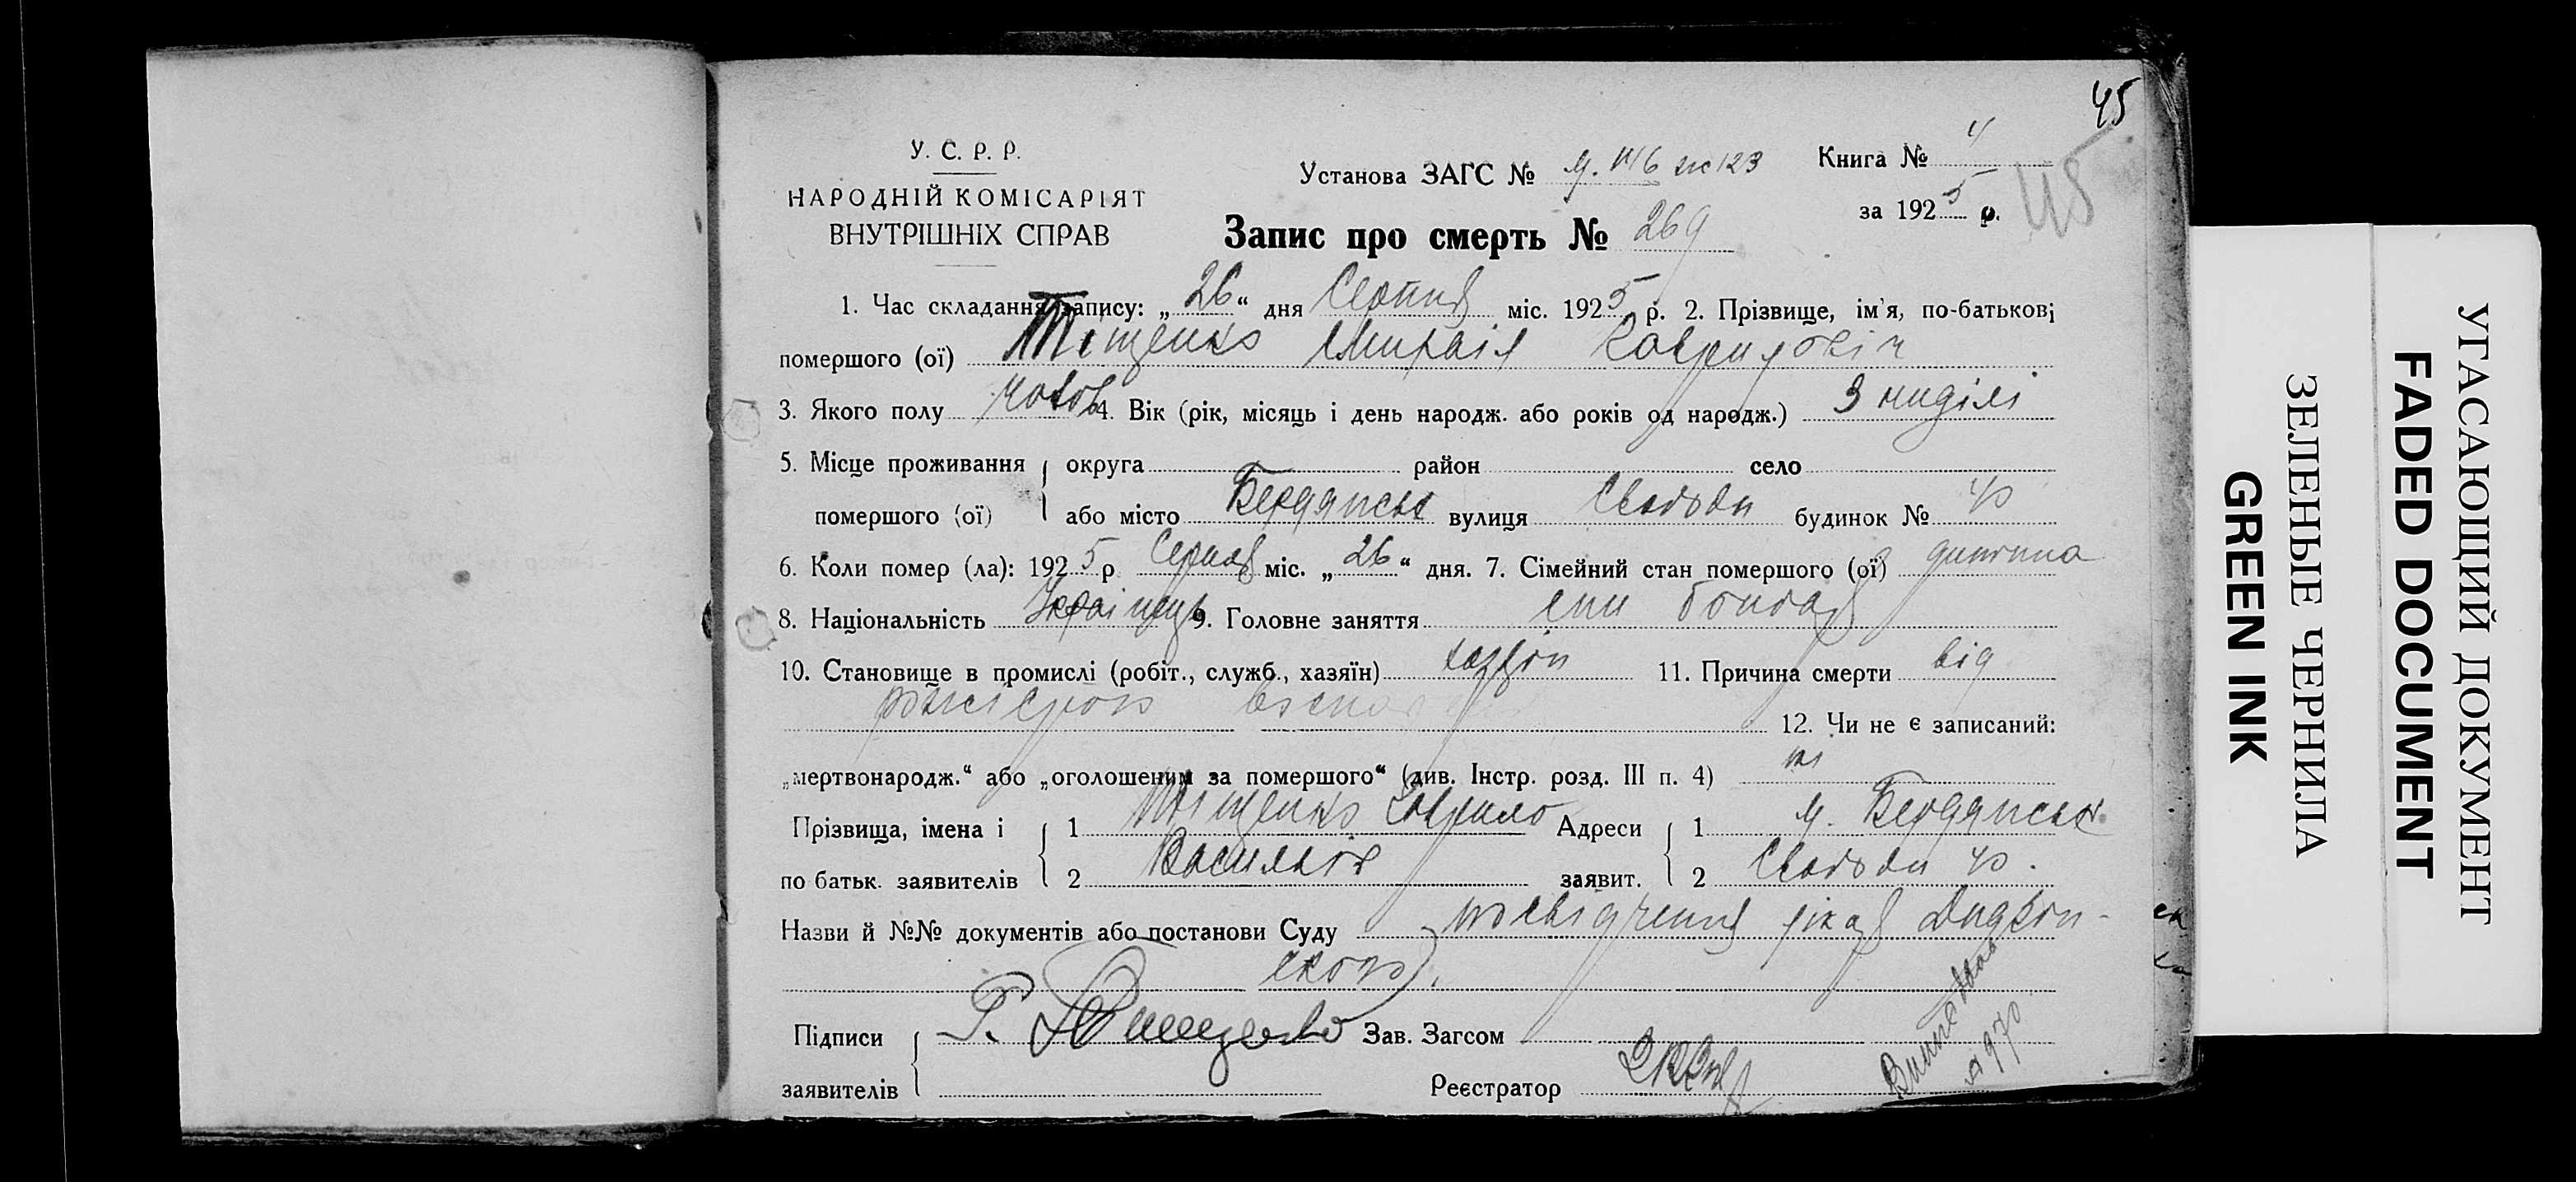 45
У. С. Р. Р.
НАРОДНІЙ КОМІСАРІЯТ
ВНУТРІШНІХ СПРАВ
Установа ЗАГС №
Книга № 4
за 1925 р.
45
Запис про смерть № 269
1. Час складання запису: „26“ дня Серпня міс. 1925 р. 2. Прізвище, ім'я, по-батькові
помершого (ої) Тищенко Михаіл Гаврилович
3. Якого полу 4. Вік (рік, місяць і день народж. або років од народж.) 3 неділі
5. Місце проживання { округа район село
помершого (ої) або місто Бердянськ вулиця Свободи будинок № 40
6. Коли помер (ла): 1925 р Серпня міс. „26“ дня. 7. Сімейний стан помершого (ої) дитина
8. Національність Украінець 9. Головне заняття син
10. Становище в промислі (робіт., служб., хазяїн) хазяін 11. Причина смерти від
12. Чи не є записаний:
„мертвонародж.“ або „оголошеним за помершого“ (див. Інстр. розд. III п. 4) ні
Прізвища, імена і { 1 Тищенко Гаврило Адреси { 1 м. Бердянськ
по батьк. заявителів 2 Васильов заявит. 2 Свободи 40.
Назви й №№ документів або постанови Суду посвідчення лікаря
Підписи { Г. Тищенко Зав. Загсом
заявителів Реєстратор
УГАСАЮЩИЙ ДОКУМЕНТ
FADED DOCUMENT
ЗЕЛЕНЫЕ ЧЕРНИЛА
GREEN INK